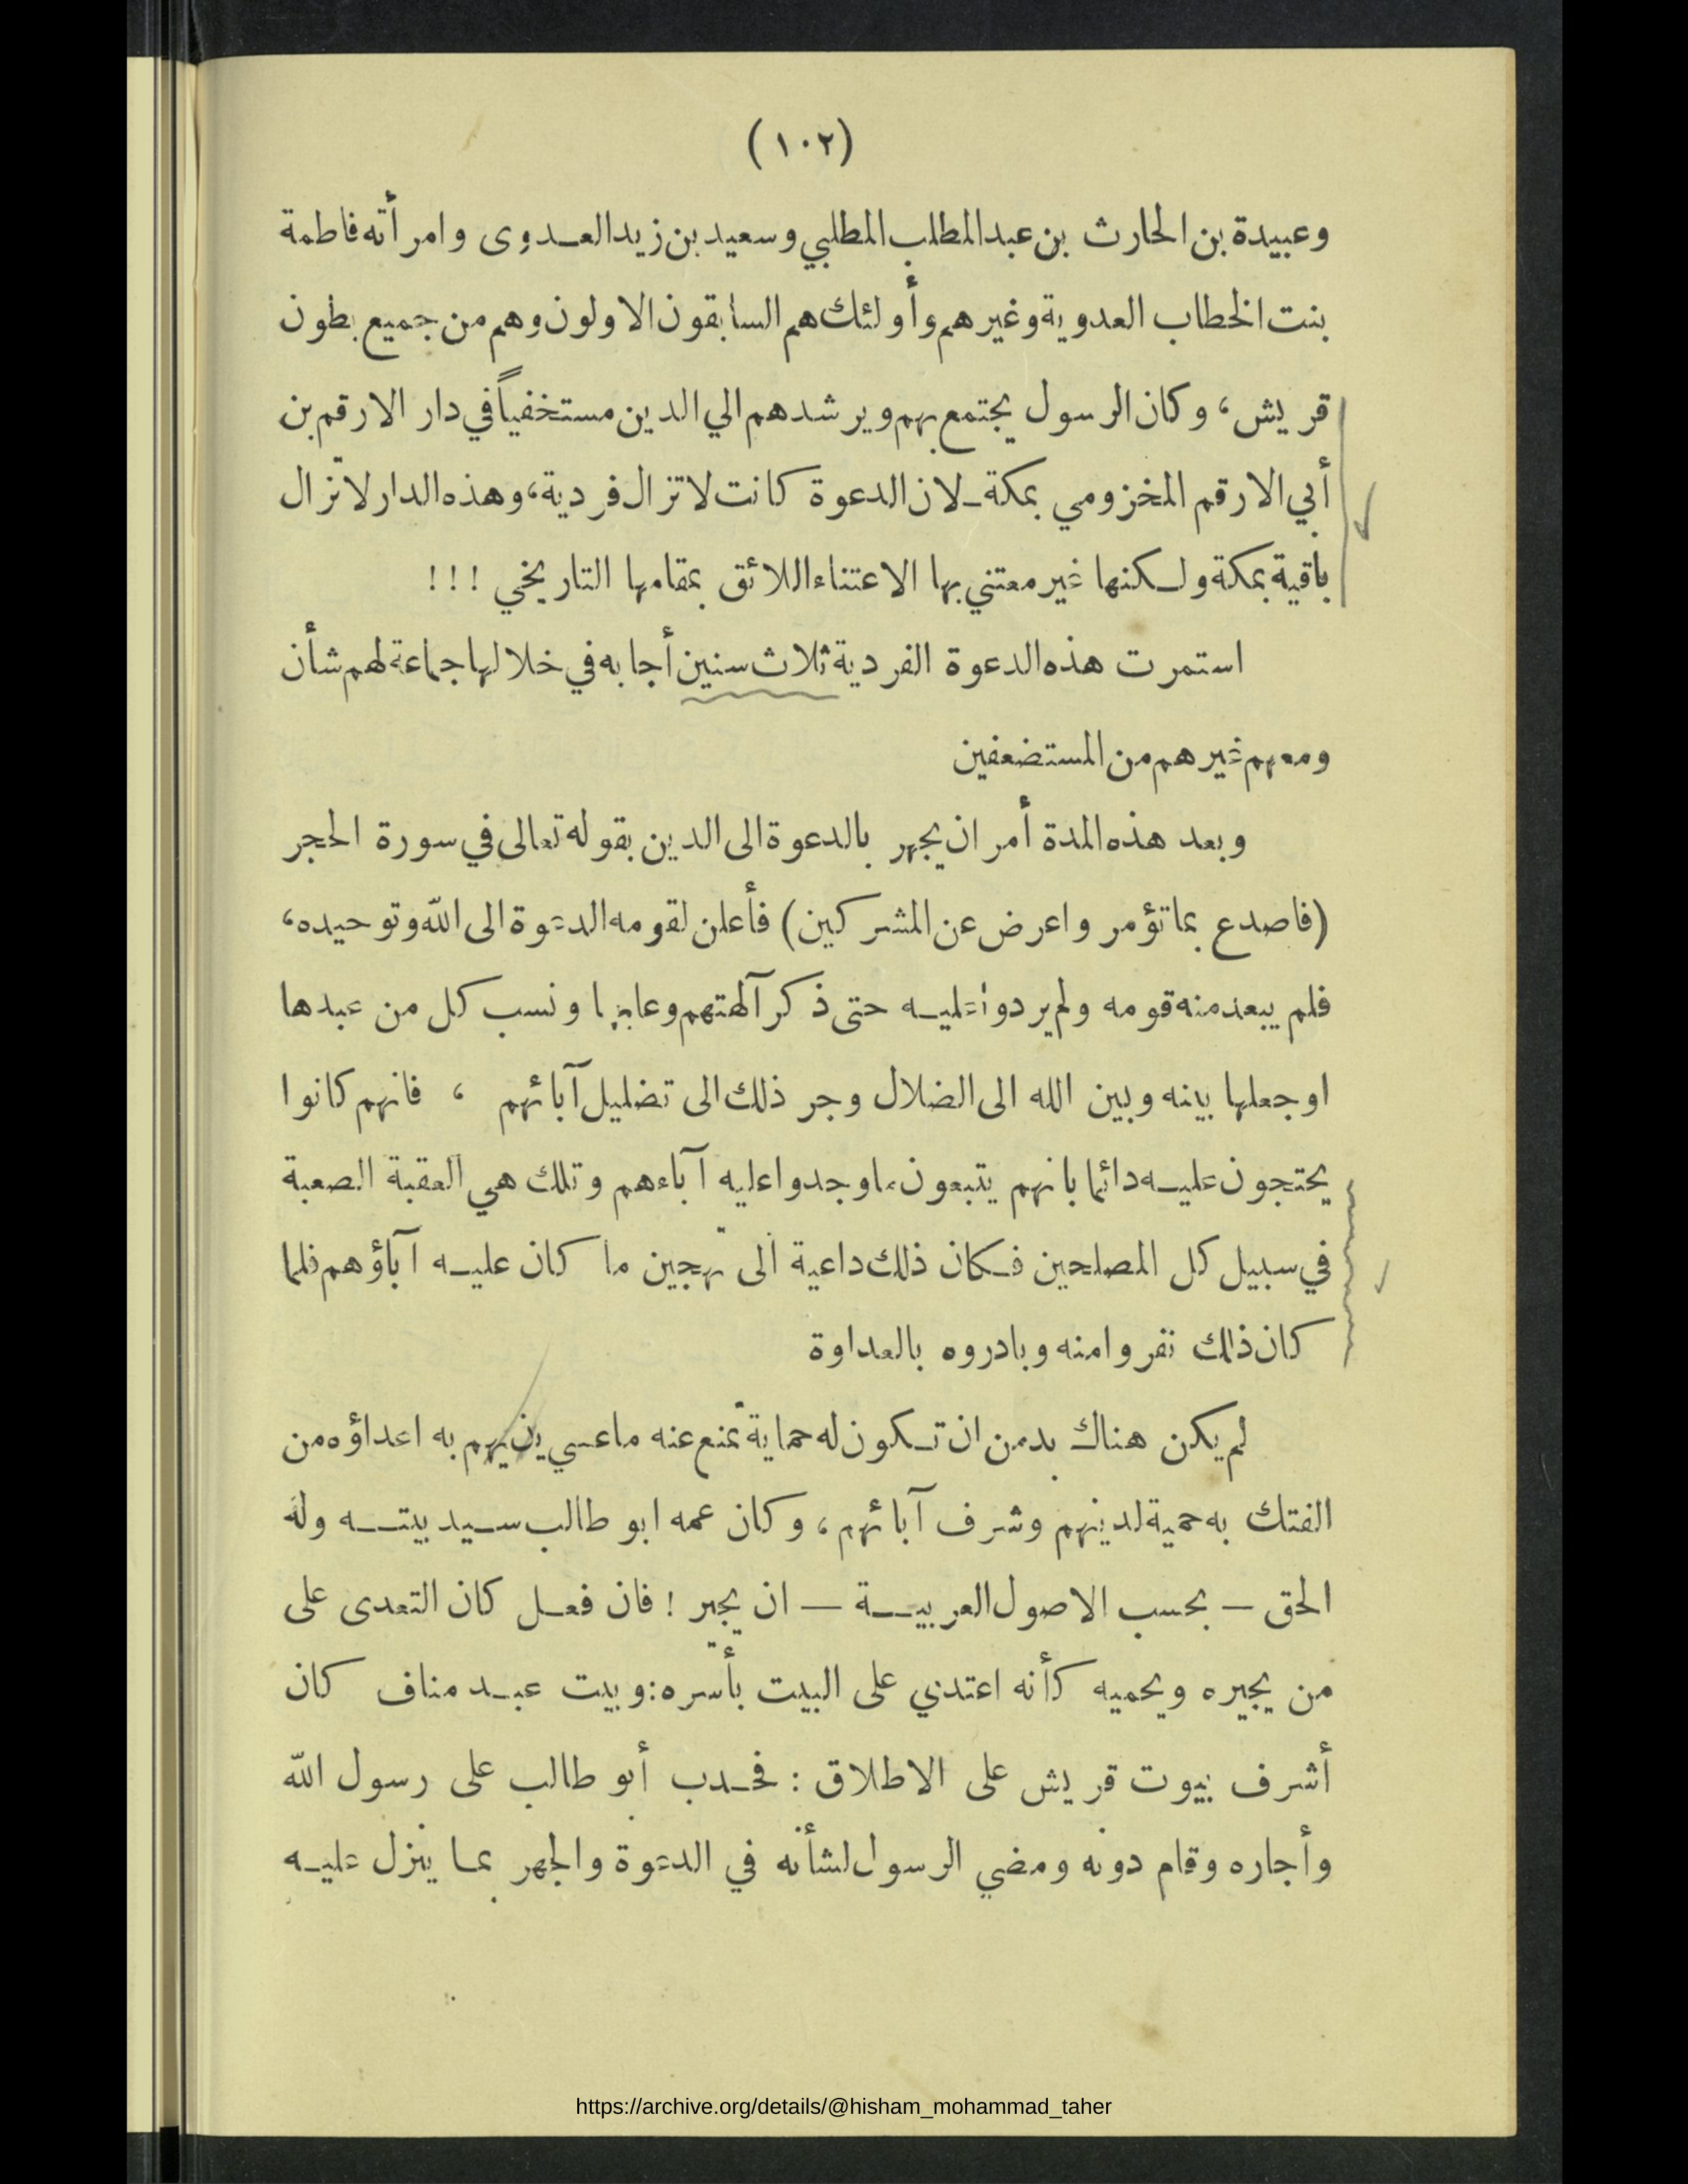 (١٠٢)
وعبيدة بن الحارث بن عبد المطلب المطلبي وسعيد بن زيد العدوى وامرأته فاطمة
بنت الخطاب العدوية وغيرهم وأولئك هم السابقون الاولون وهم من جميع بطون
قريش، وكان الرسول يجتمع بهم ويرشدهم الي الدين مستخفياً في دار الارقم بن
أبي الارقم المخزومي بمكة ـ لان الدعوة كانت لا تزال فردية، وهذه الدار لا تزال
باقية بمكة ولكنها غير معتني بها الاعتناء اللائق بمقامها التاريخي !!!
استمرت هذه الدعوة الفردية ثلاث سنين أجابه في خلالها جماعة لهم شأن
ومعهم غيرهم من المستضعفين
وبعد هذه المدة أمر ان يجهر بالدعوة الى الدين بقوله تعالى في سورة الحجر
(فاصدع بما تؤمر واعرض عن المشركين) فأعلن لقومه الدعوة الى الله وتوحيده،
فلم يبعد منه قومه ولم يردوا عليه حتى ذكر آلهتهم وعابها ونسب كل من عبدها
او جعلها بينه وبين الله الى الضلال وجر ذلك الى تضليل آبائهم ، فانهم كانوا
يحتجون عليه دائما بانهم يتبعون ما وجدوا عليه آباءهم وتلك هي العقبة الصعبة
في سبيل كل المصلحين فكان ذلك داعية الى تهجين ما كان عليه آباؤهم فلما
كان ذلك نفروا منه وبادروه بالعداوة
لم يكن هناك بد من ان تكون له حماية تمنع عنه ما عسي يهم به اعداؤه من
الفتك به حمية لدينهم وشرف آبائهم، وكان عمه ابو طالب سيد بيته وله
الحق — بحسب الاصول العربية — ان يجير ! فان فعل كان التعدى على
من يجيره ويحميه كأنه اعتدي على البيت بأسره: وبيت عبد مناف كان
أشرف بيوت قريش على الاطلاق : فحدب أبو طالب على رسول الله
وأجاره وقام دونه ومضي الرسول لشأنه في الدعوة والجهر بما ينزل عليه
https://archive.org/details/@hisham_mohammad_taher